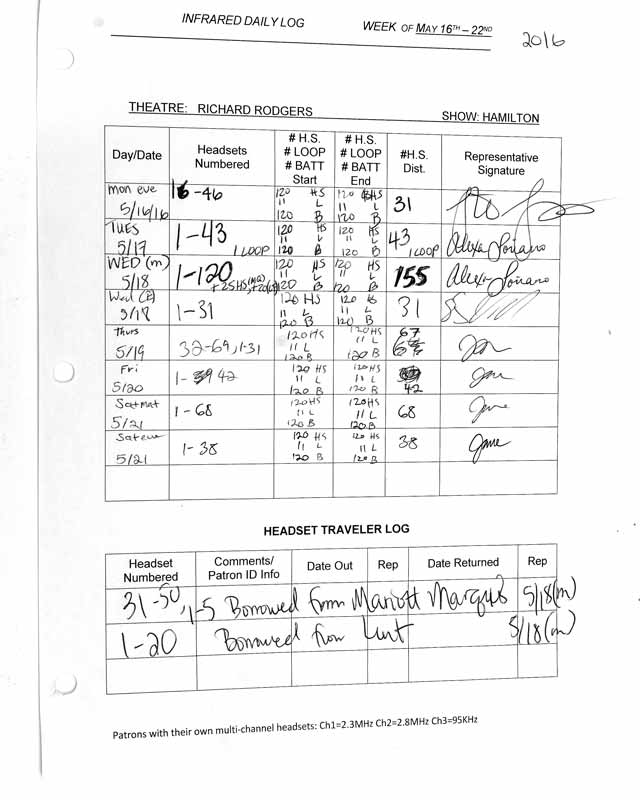 INFRARED DAILY LOG WEEK OF MAY 16TH – 22ND
2016
THEATRE: RICHARD RODGERS SHOW: HAMILTON
Day/Date Headsets Numbered # H.S. # LOOP # BATT Start # H.S. # LOOP # BATT End #H.S. Dist. Representative Signature
Mon eve 5/16/16 -46 120 HS 11 L 120 B 120 HS 11 L 120 B 31
TUES 5/17 1-43 1 LOOP 120 HS 11 L 120 B 120 HS 11 L 120 B 43 1 LOOP Alexa
WED (m) 5/18 1-120 120 HS 11 L 120 B 120 HS 11 L 120 B 155 Alexa
Wed (E) 5/18 1-31 120 HS 11 L 120 B 120 HS 11 L 120 B 31
Thurs 5/19 32-69, 1-31 120 HS 11 L 120 B 120 HS 11 L 120 B 67
Fri 5/20 1- 42 120 HS 11 L 120 B 120 HS 11 L 120 B 42
Sat mat 5/21 1-68 120 HS 11 L 120 B 120 HS 11 L 120 B 68
Sat eve 5/21 1-38 120 HS 11 L 120 B 120 HS 11 L 120 B 38
HEADSET TRAVELER LOG
Headset Numbered Comments/ Patron ID Info Date Out Rep Date Returned Rep
31-50, 1-5 Borrowed from Mariott Marquis 5/18(m)
1-20 Borrowed from Lunt 5/18(m)
Patrons with their own multi-channel headsets: Ch1=2.3MHz Ch2=2.8MHz Ch3=95KHz